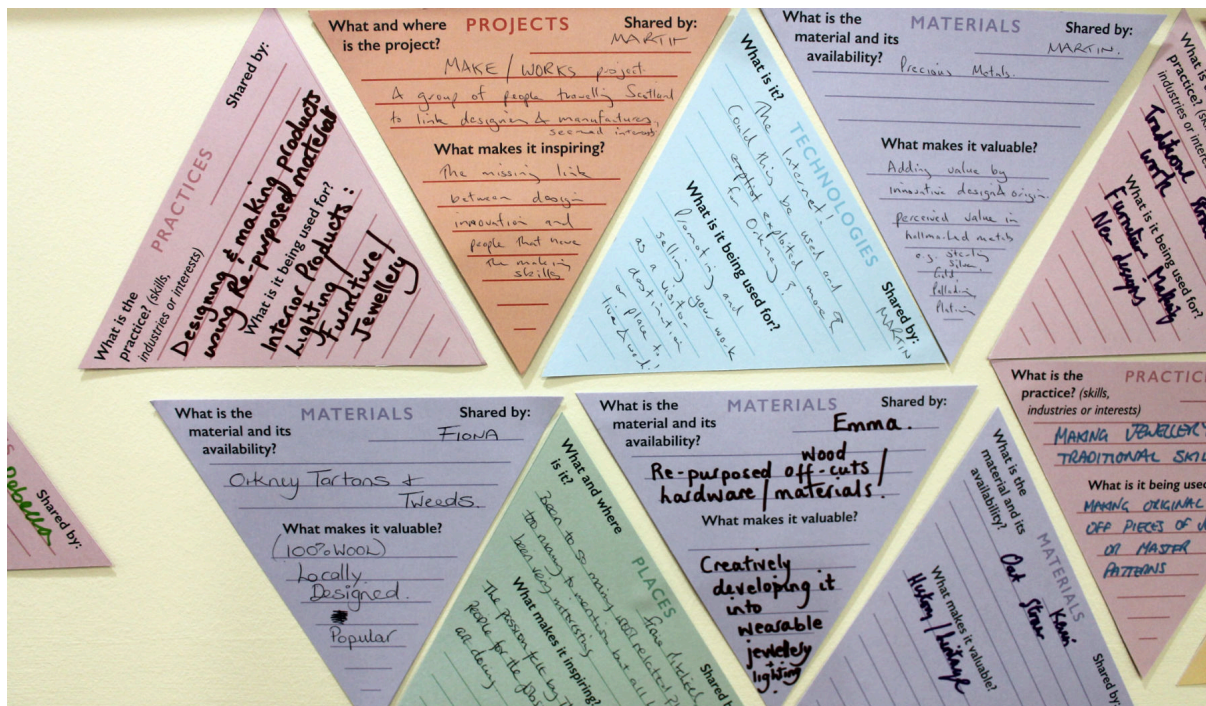 PRACTICES
Shared by:
What is the
practice? (skills,
industries or interests)
Designing & making products
using Re-purposed material
What is it being used for?
Interior Products :
Lighting /
Furniture /
Jewellery
What and where
is the project?
PROJECTS
Shared by:
MARTIN
MAKE / WORKS project.
A group of people travelling Scotland
to link designers & manufactures,
seemed interest
What makes it inspiring?
The missing link
between design
innovation and
people that have
the making
skills
TECHNOLOGIES
What is it?
The Internet!
Could this be used and
exploited more
for Orkney?
What is it being used for?
Promoting and
selling your work
as a visitor
destination
or place to
live & work!
Shared by:
MARTIN
What is the
material and its
availability?
MATERIALS
Shared by:
MARTIN.
Precious Metals.
What makes it valuable?
Adding value by
innovative design & origin.
perceived value in
hallmarked metals
e.g. sterling
silver,
Gold
Palladium
Platinum
What is
practice? (sk
industries or intere
Traditional
work
What is it being used for?
Furniture Making
New designs
Shared by:
Rebecca
What is the
material and its
availability?
MATERIALS
Shared by:
FIONA
Orkney Tartans &
Tweeds.
What makes it valuable?
(100% WOOL)
Locally
Designed.
Popular
What and where
is it?
PLACES
Shared
Been to so many
too many to mention but all
been very interesting
What makes it inspiring?
The passion felt by
people for the jobs
are doing
What is the
material and its
availability?
MATERIALS
Shared by:
Emma.
Re-purposed wood off-cuts /
hardware / materials.
What makes it valuable?
Creatively
developing it
into
wearable
jewellery
lighting
What is the
material and its
availability?
MATERIALS
Shared by:
Kevin
Oat Straw
What makes it valuable?
History / heritage
What is the
practice? (skills,
industries or interests)
PRACTIC
MAKING JEWELLERY
TRADITIONAL SKIL
What is it being used
MAKING ORIGINAL
OFF PIECES OF J
OR MASTER
PATTERNS